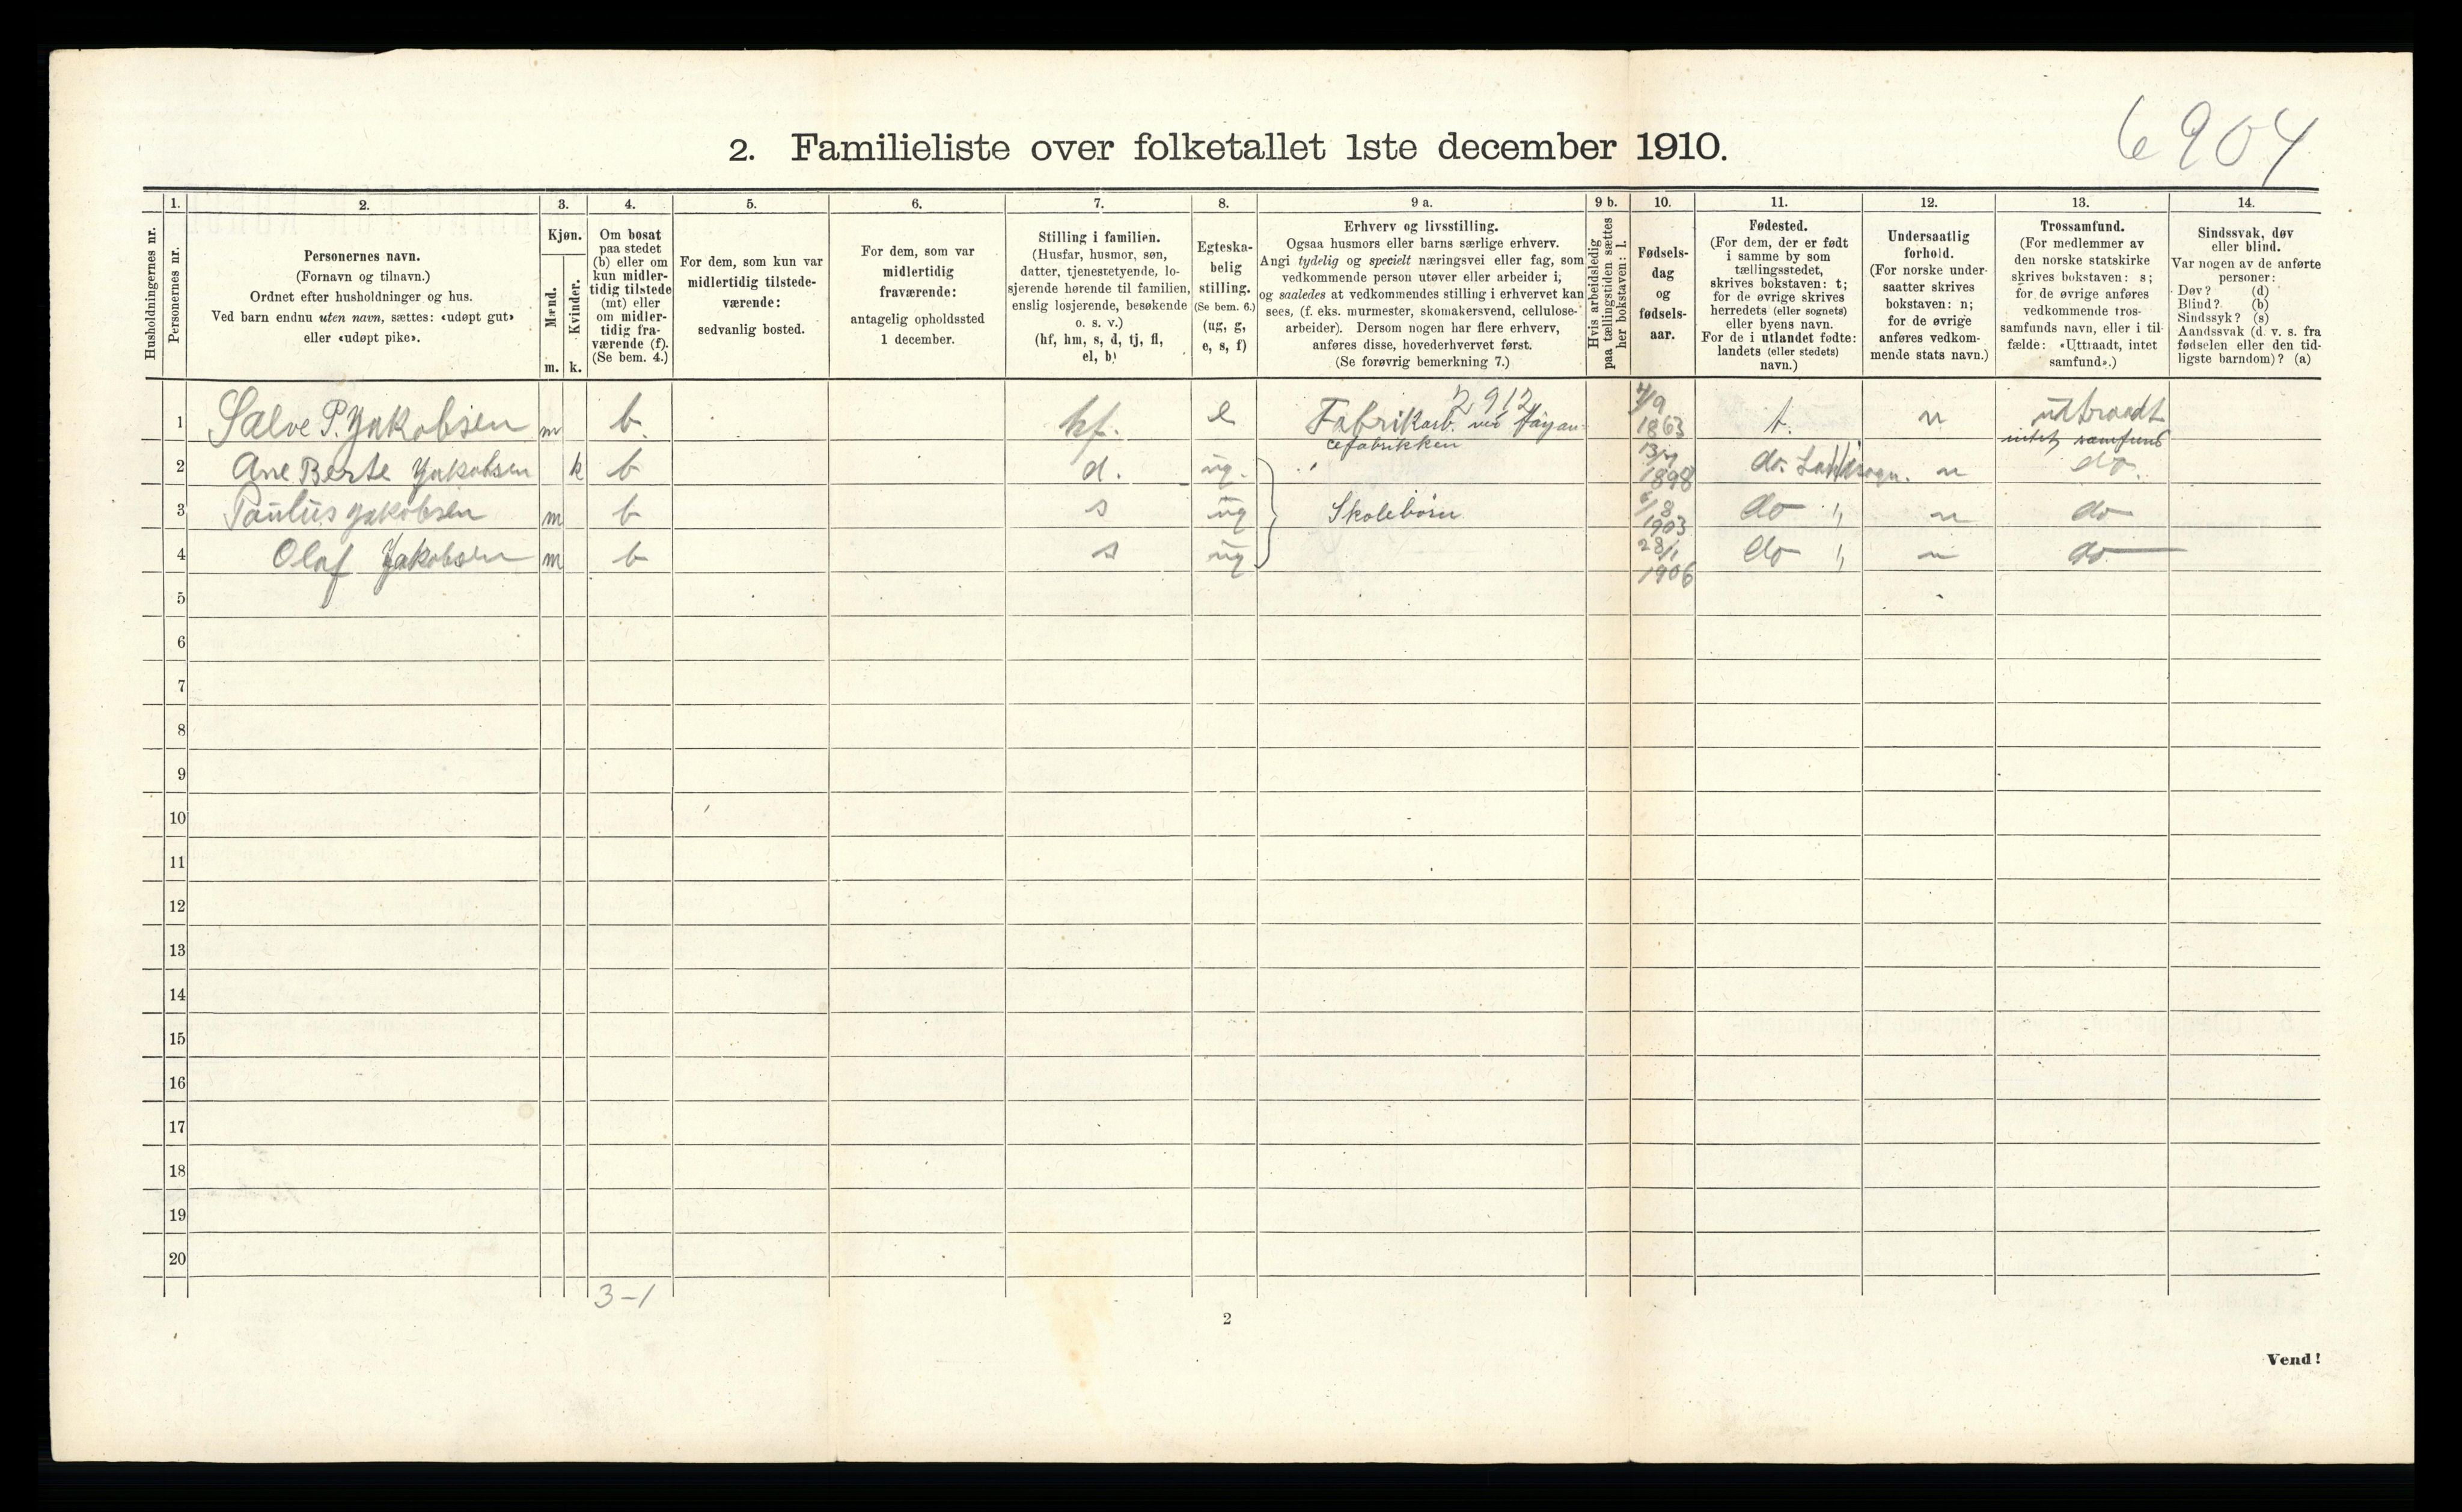 6904
2. Familieliste over folketallet 1ste december 1910.
1. 2. 3. 4. 5. 6. 7. 8. 9 a. 9 b. 10. 11. 12. 13. 14.
Husholdningernes nr.
Personernes nr.
Personernes navn.
(Fornavn og tilnavn.)
Ordnet efter husholdninger og hus.
Ved barn endnu uten navn, sættes: «udøpt gut»
eller «udøpt pike».
Kjøn.
Mænd.
Kvinder.
m. k.
Om bosat
paa stedet
(b) eller om
kun midler-
tidig tilstede
(mt) eller
om midler-
tidig fra-
værende (f).
(Se bem. 4.)
For dem, som kun var
midlertidig tilstede-
værende:
sedvanlig bosted.
For dem, som var
midlertidig
fraværende:
antagelig opholdssted
1 december.
Stilling i familien.
(Husfar, husmor, søn,
datter, tjenestetyende, lo-
sjerende hørende til familien,
enslig losjerende, besøkende
o. s. v.)
(hf, hm, s, d, tj, fl,
el, b)
Egteska-
belig
stilling.
(Se bem. 6.)
(ug, g,
e, s, f)
Erhverv og livsstilling.
Ogsaa husmors eller barns særlige erhverv.
Angi tydelig og specielt næringsvei eller fag, som
vedkommende person utøver eller arbeider i,
og saaledes at vedkommendes stilling i erhvervet kan
sees, (f. eks. murmester, skomakersvend, cellulose-
arbeider). Dersom nogen har flere erhverv,
anføres disse, hovederhvervet først.
(Se forøvrig bemerkning 7.)
Hvis arbeidsledig
paa tællingstiden sættes
her bokstaven: l.
Fødsels-
dag
og
fødsels-
aar.
Fødested.
(For dem, der er født
i samme by som
tællingsstedet,
skrives bokstaven: t;
for de øvrige skrives
herredets (eller sognets)
eller byens navn.
For de i utlandet fødte:
landets (eller stedets)
navn.)
Undersaatlig
forhold.
(For norske under-
saatter skrives
bokstaven: n;
for de øvrige
anføres vedkom-
mende stats navn.)
Trossamfund.
(For medlemmer av
den norske statskirke
skrives bokstaven: s;
for de øvrige anføres
vedkommende tros-
samfunds navn, eller i til-
fælde: «Uttraadt, intet
samfund».)
Sindssvak, døv
eller blind.
Var nogen av de anførte
personer:
Døv? (d)
Blind? (b)
Sindssyk? (s)
Aandssvak (d. v. s. fra
fødselen eller den tid-
ligste barndom)? (a)
2912
1 Salve P. Yakobsen m b. hf. e Fabrikarb. ved 1863 t. n udtraadt
cefabrikken intet samfund
2 Ane Berte Yakobsen k b d. ug. 1898 do. Landsogn. n do.
3 Paulus Yakobsen m b s ug Skolebörn 6/8 1903 do " n do
4 Olaf Yakobsen m b s ug 28/1 1906 do " n do
5
6
7
8
9
10
11
12
13
14
15
16
17
18
19
20
3-1
2
Vend!